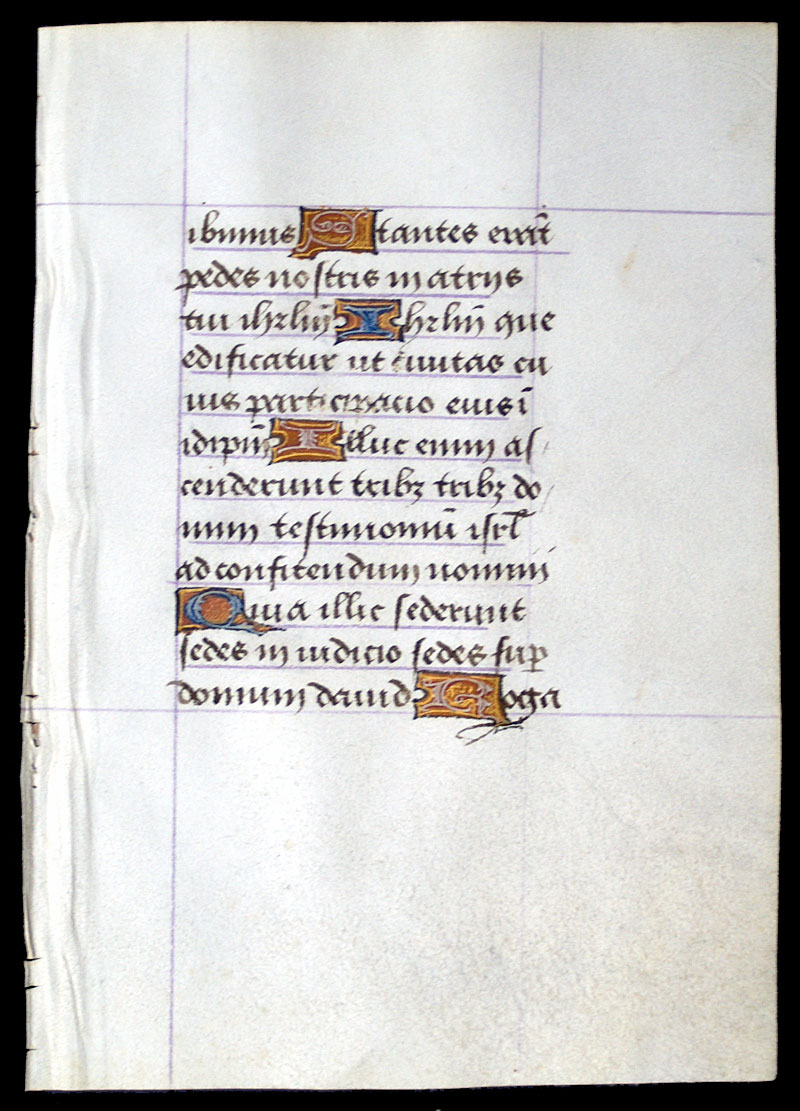 ibimus Stantes erāt
pedes nostris in atrijs
tui ihrlm̄ Ihrlm̄ que
edificatur ut ciuitas cu
ius participacio eius ī
idipm̄ Illuc enim as
cenderunt tribꝫ tribꝫ do
mini testimoniū isrl̄
ad confitendum nomini
Quia illic sederunt
sedes in iudicio sedes suꝑ
domum dauid Roga